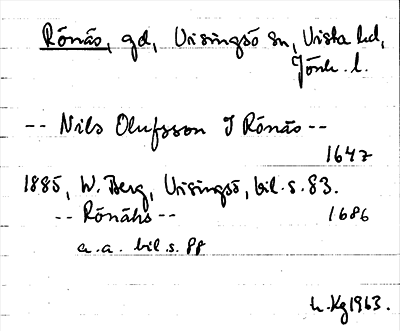 Rönäs, gd, Visingsö sn, Vista hd,
Jönk. l.
-- Nils Olufsson I Rönäs --
1647
1885, W. Berg, Visingsö, bil. s. 83.
-- Rönähs --
1686
a. a. bil. s. 88
h. Kg 1963.